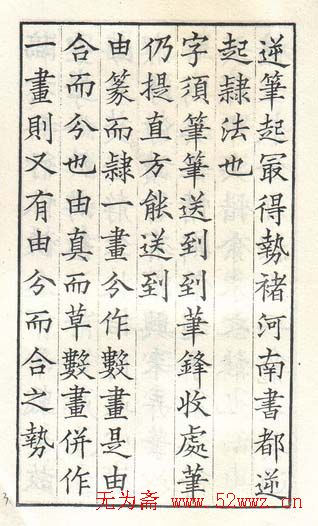 逆筆起冣得勢褚河南書都逆
起隷法也
字須筆筆送到到筆鋒收處筆
仍提直方能送到
由篆而隷一畫分作數畫是由
合而分也由真而草數畫併作
一畫則又有由分而合之勢
无为斋 www.52wwz.cn